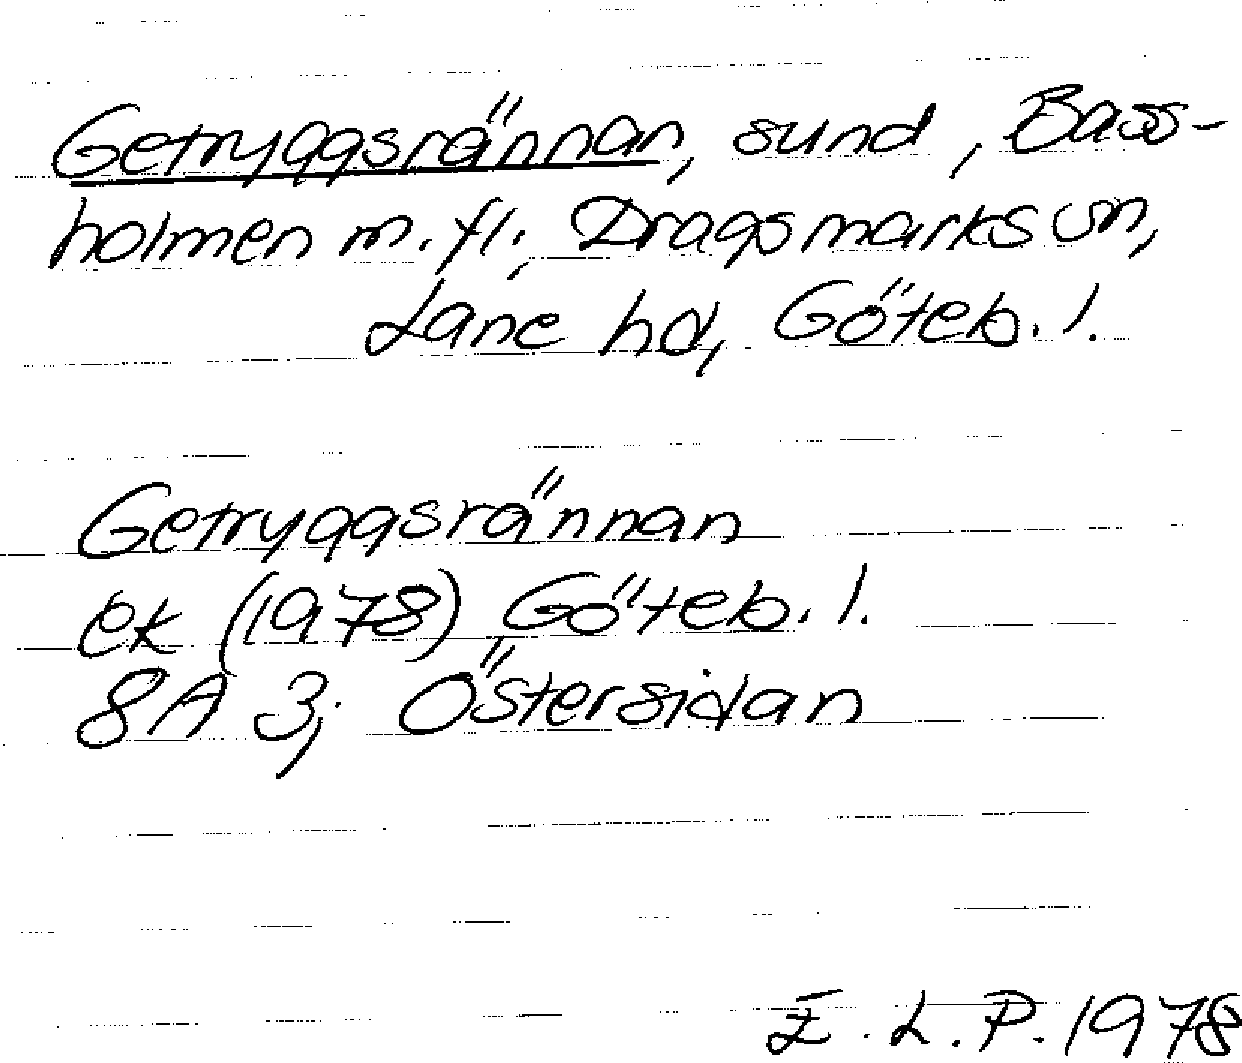 Getryggsrännan, sund, Bass-
holmen m.fl., Dragsmarks sn,
Lane hd, Göteb. l.
Getryggsrännan
ek (1978) Göteb. l.
8A 3; Östersidan
E.L.P. 1978